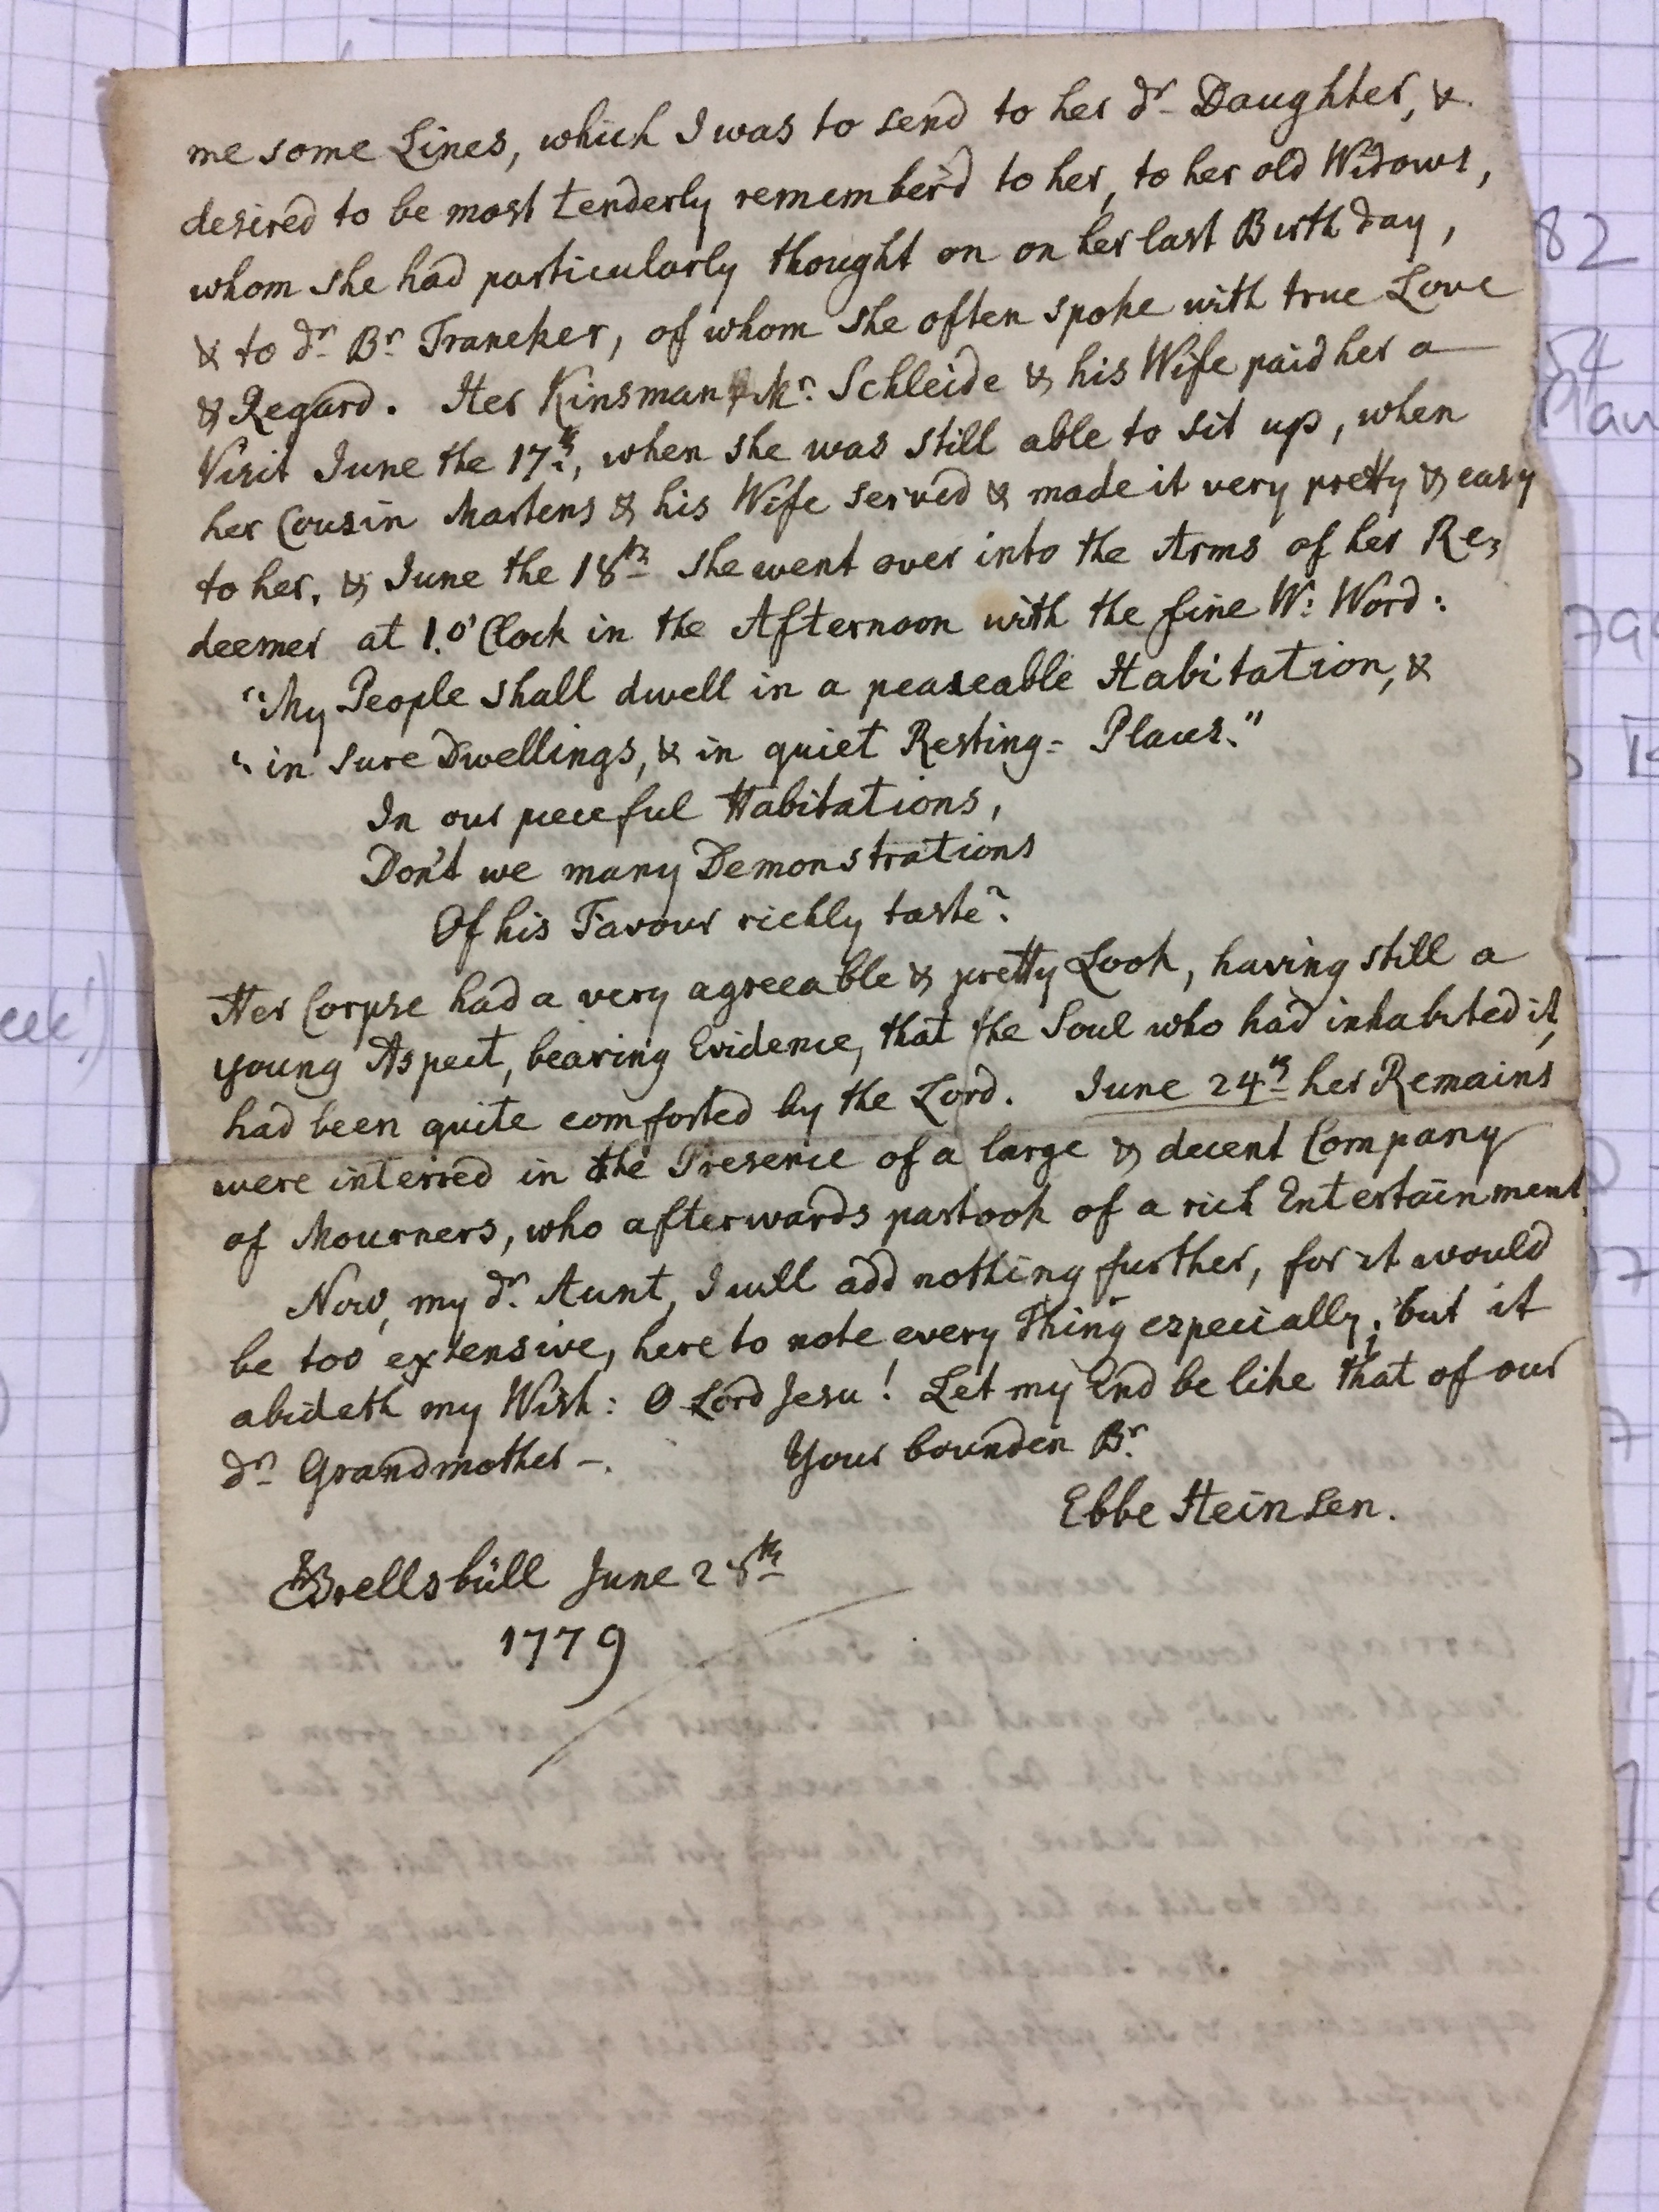 me some Lines, which I was to send to her dr. Daughter, &
desired to be most tenderly remember'd to her, to her old Widows,
whom she had particularly thought on on her last Birth day,
& to dr. Br. Franeker, of whom she often spoke with true Love
& Regard. Her Kinsman Mr. Schleide & his Wife paid her a
Visit June the 17th, when she was still able to sit up, when
her Cousin Martens & his Wife served & made it very pretty & easy
to her. & June the 18th she went over into the Arms of her Re=
deemer at 1.o'Clock in the Afternoon with the fine W: Word:
"My People shall dwell in a peaseable Habitation, &
"in sure Dwellings, & in quiet Resting= Places."
In our peaceful Habitations,
Don't we many Demonstrations
Of his Favour richly taste?
Her Corpse had a very agreeable & pretty Look, having still a
young Aspect, bearing Evidence, that the Soul who had inhabited it,
had been quite comforted by the Lord. June 24th her Remains
were interred in the Presence of a large & decent Company
of Mourners, who afterwards partook of a rich Entertainment.
Now, my dr. Aunt, I will add nothing further, for it would
be too extensive, here to note every Thing especially; but it
abideth my Wish: O Lord Jesu! Let my End be like that of our
dr. Grandmother –.
Your bounden Br.
Ebbe Heinsen.
Brellsbüll June 28th
1779
82
54